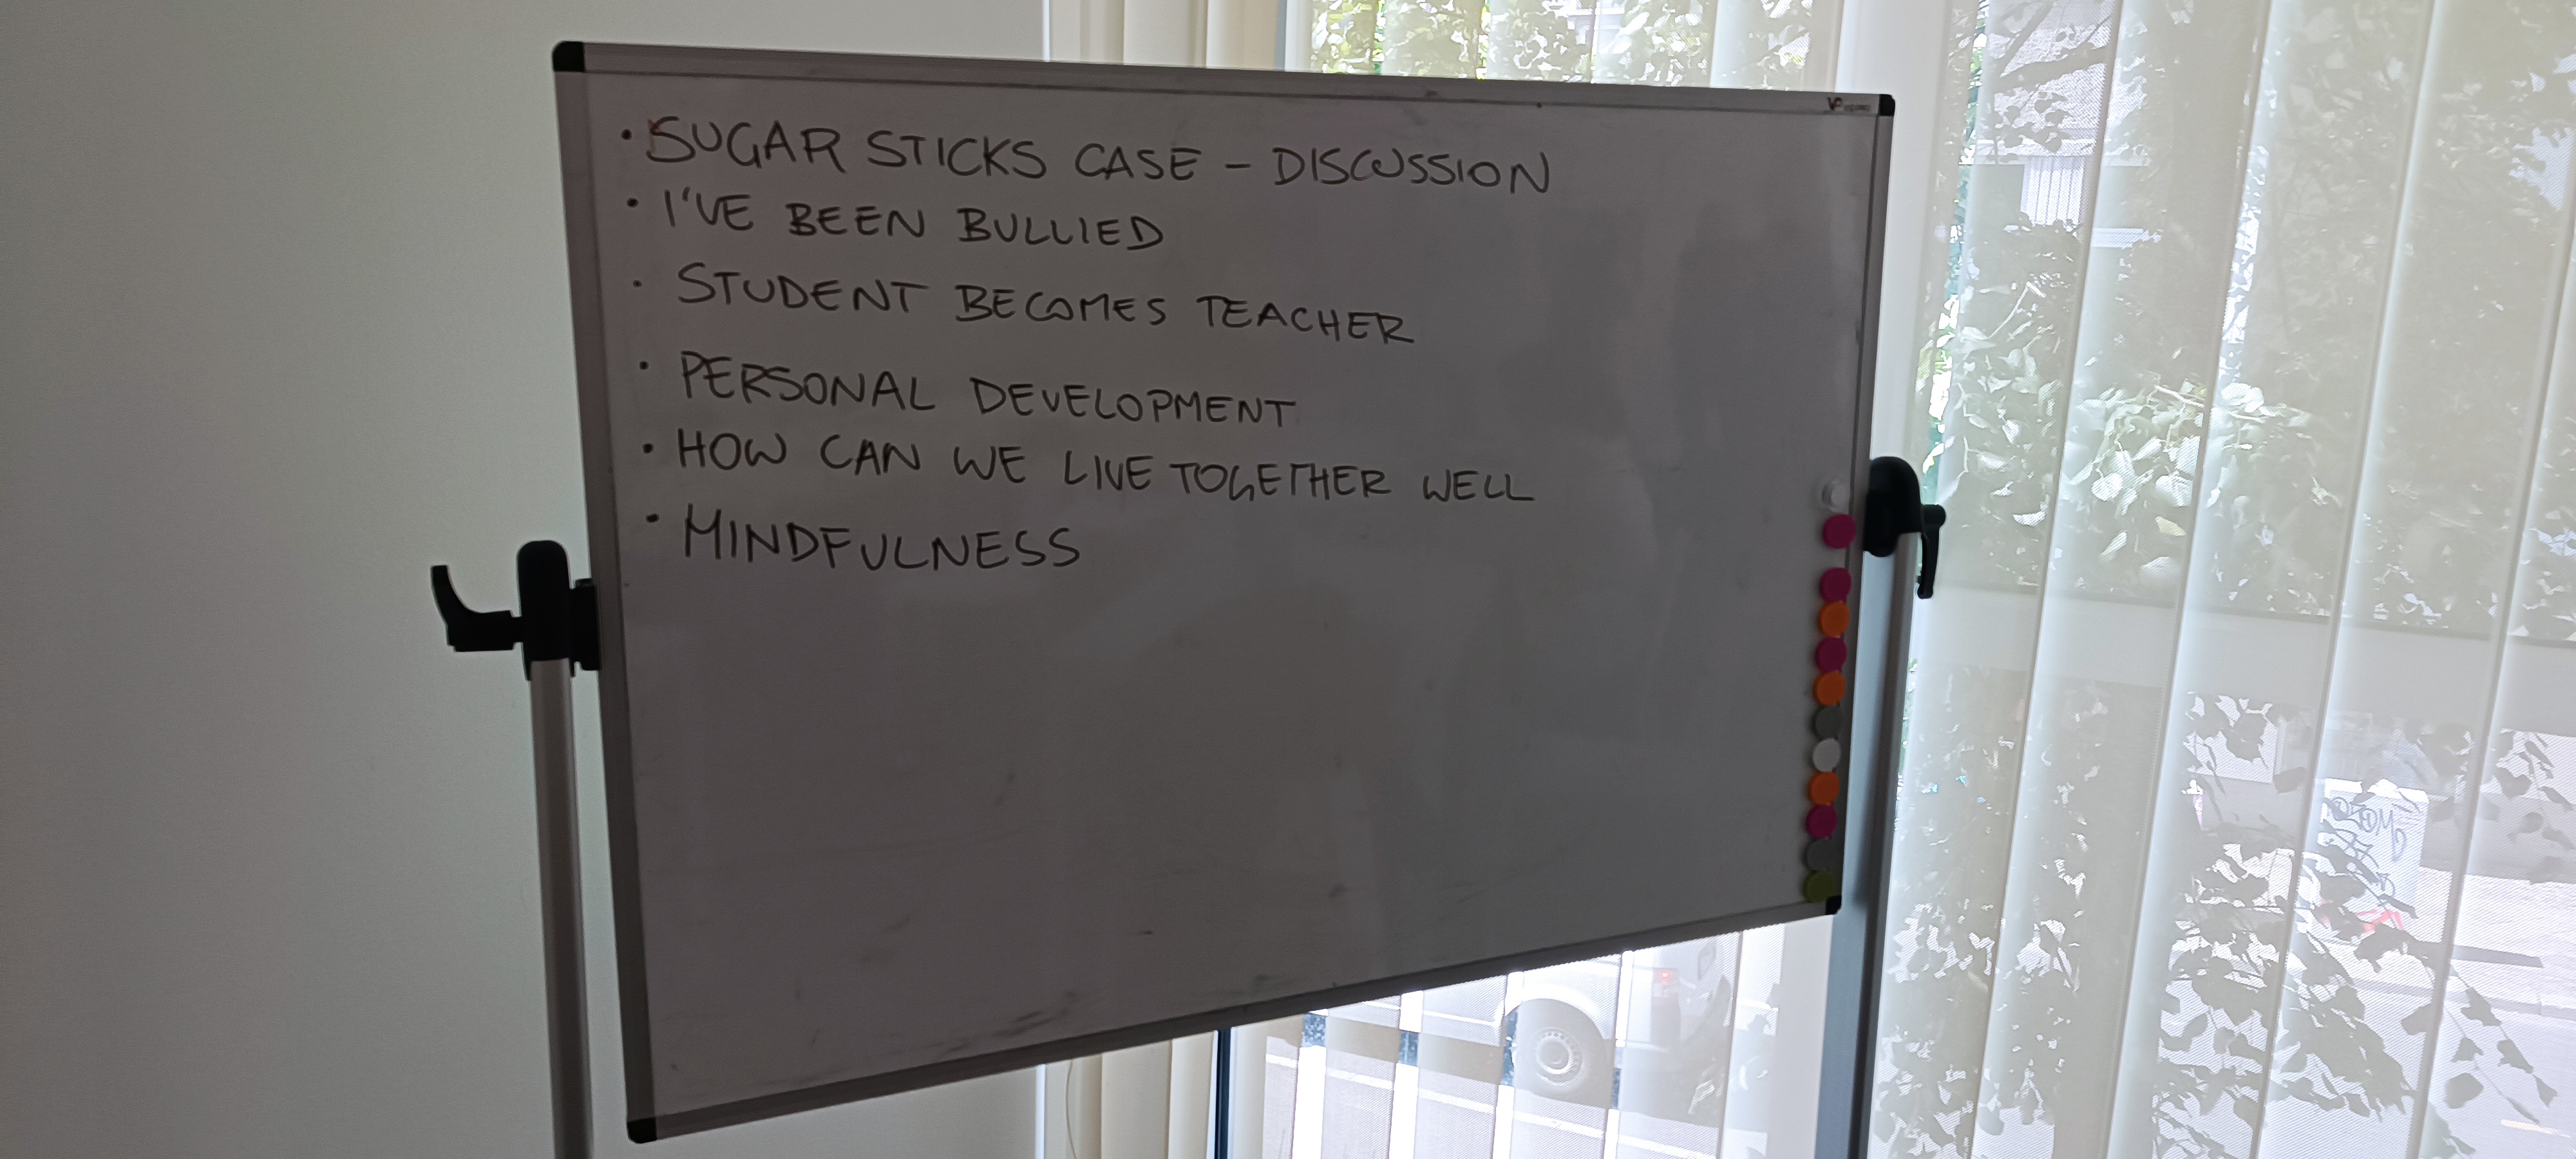 • SUGAR STICKS CASE – DISCUSSION
• I'VE BEEN BULLIED
• STUDENT BECOMES TEACHER
• PERSONAL DEVELOPMENT
• HOW CAN WE LIVE TOGETHER WELL
• MINDFULNESS